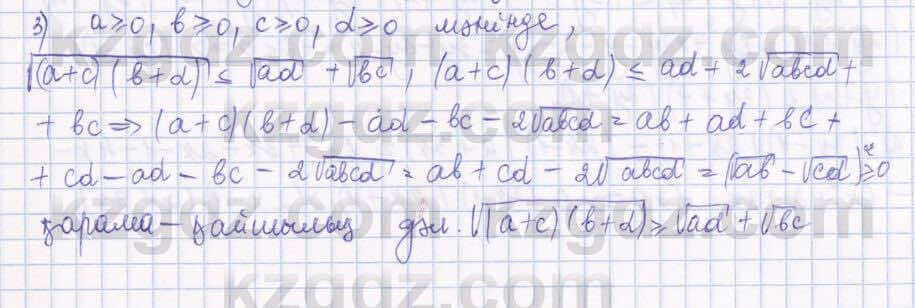 3) a≥0, b≥0, c≥0, d≥0 мәнінде,
√((a+c)(b+d)) ≤ √ad + √bc, (a+c)(b+d) ≤ ad + 2√abcd +
+ bc ⇒ (a+c)(b+d) - ad - bc - 2√abcd = ab + ad + bc +
+ cd - ad - bc - 2√abcd = ab + cd - 2√abcd = (√ab - √cd)² ≥ 0
қарама-қайшылық дәл. √((a+c)(b+d)) ≥ √ad + √bc
kzgdz.com